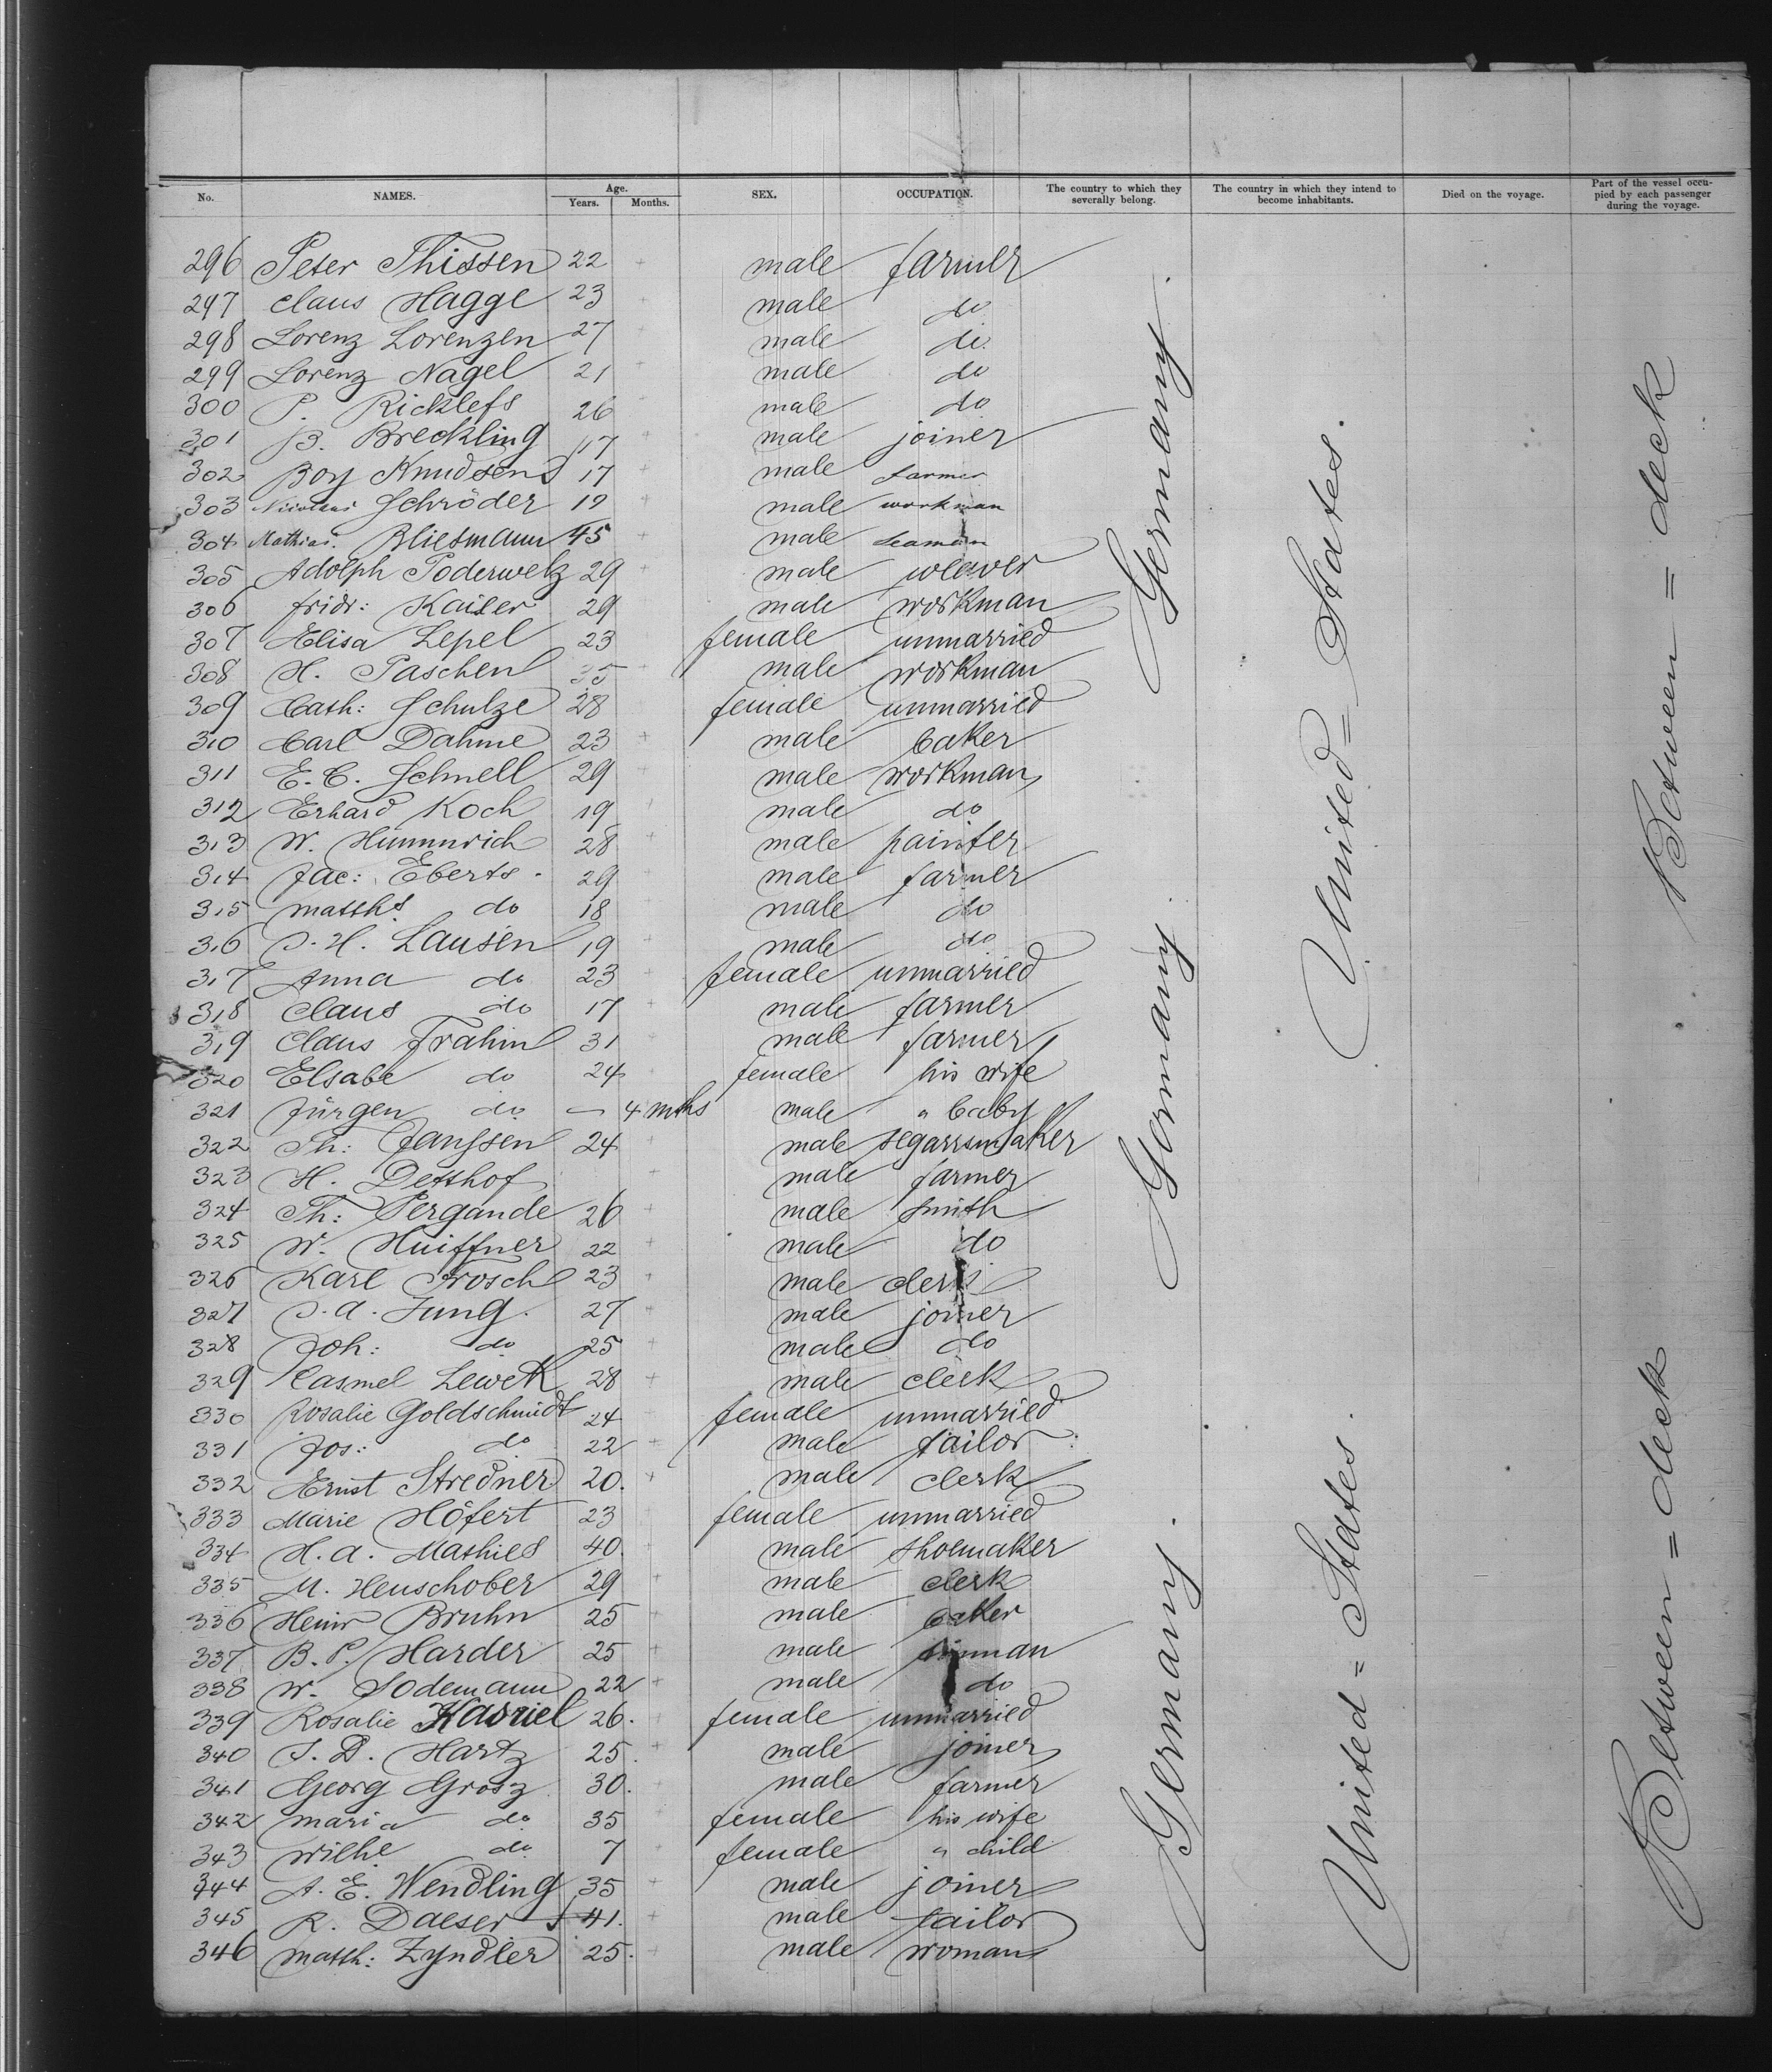 No. NAMES. Age. Years. Months. SEX. OCCUPATION. The country to which they severally belong. The country in which they intend to become inhabitants. Died on the voyage. Part of the vessel occupied by each passenger during the voyage.
296 Peter Thissen 22 male farmer
297 Claus Hagge 23 male do
298 Lorenz Lorenzen 27 male do
299 Lorenz Nagel 21 male do
300 P. Ricklefs 26 male do
301 B. Breckling 17 male joiner
302 Boy Knudsen 17 male farmer
303 Nicolaus Schröder 19 male workman
304 Mathias. Bliesmann 45 male seaman
305 Adolph Poderwelz 29 male weaver
306 fridr: Kaiser 29 male workman
307 Elisa Lepel 23 female unmarried
308 H. Paschen 35 male workman
309 Cath: Schulze 28 female unmarried
310 Carl Dahme 23 male baker
311 E. C. Schnell 29 male workman
312 Erhard Koch 19 male do
313 W. Hümmrich 28 male painter
314 Jac: Eberts 29 male farmer
315 Matths. do 18 male do
316 J. H. Lausen 19 male do
317 Anna do 23 female unmarried
318 Claus do 17 male farmer
319 Claus Frahm 31 male farmer
320 Elsabe do 24 female his wife
321 Jürgen do — 4 mths male " baby
322 Th: Janssen 24 male segarrsmaker
323 H. Detthof male farmer
324 Th: Pergande 26 male smith
325 W. Huiffner 22 male do
326 Karl Frosch 23 male clerk
327 J. A. Jung. 27 male joiner
328 Joh: do 25 male do
329 Casmel Lewek 28 male clerk
330 Rosalie Goldschmidt 24 female unmarried
331 Jos: do 22 male tailor
332 Ernst Stredner 20. male clerk
333 Marie Höfert 23 female unmarried
334 H. A. Mathies 40. male shoemaker
335 M. Heuschober 29 male clerk
336 Heinr Bruhn 25 male baker
337 B. P. Harder 25 male
338 W. Sodemann 22 male do
339 Rosalie Kasriel 26. female unmarried
340 J. D. Hartz 25. male joiner
341 Georg Grosz 30. male farmer
342 Maria do 35 female his wife
343 Wilhe do 7 female " child
344 A. E. Wendling 35 male joiner
345 R. Daeser 41. male tailor
346 Matth: Zyndler 25. male woman
Germany.
Germany.
Germany.
United = States.
United = States.
Between = deck
Between = deck